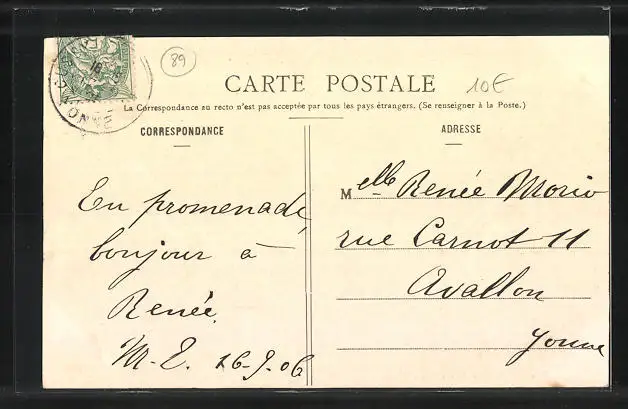 89
CARTE POSTALE
10€
La Correspondance au recto n'est pas acceptée par tous les pays étrangers. (Se renseigner à la Poste.)
CORRESPONDANCE
ADRESSE
En promenade,
bonjour à
Renée.
M-E. 26-9-06
Melle Renée Morio
rue Carnot 11
Avallon
Yonne
YONNE